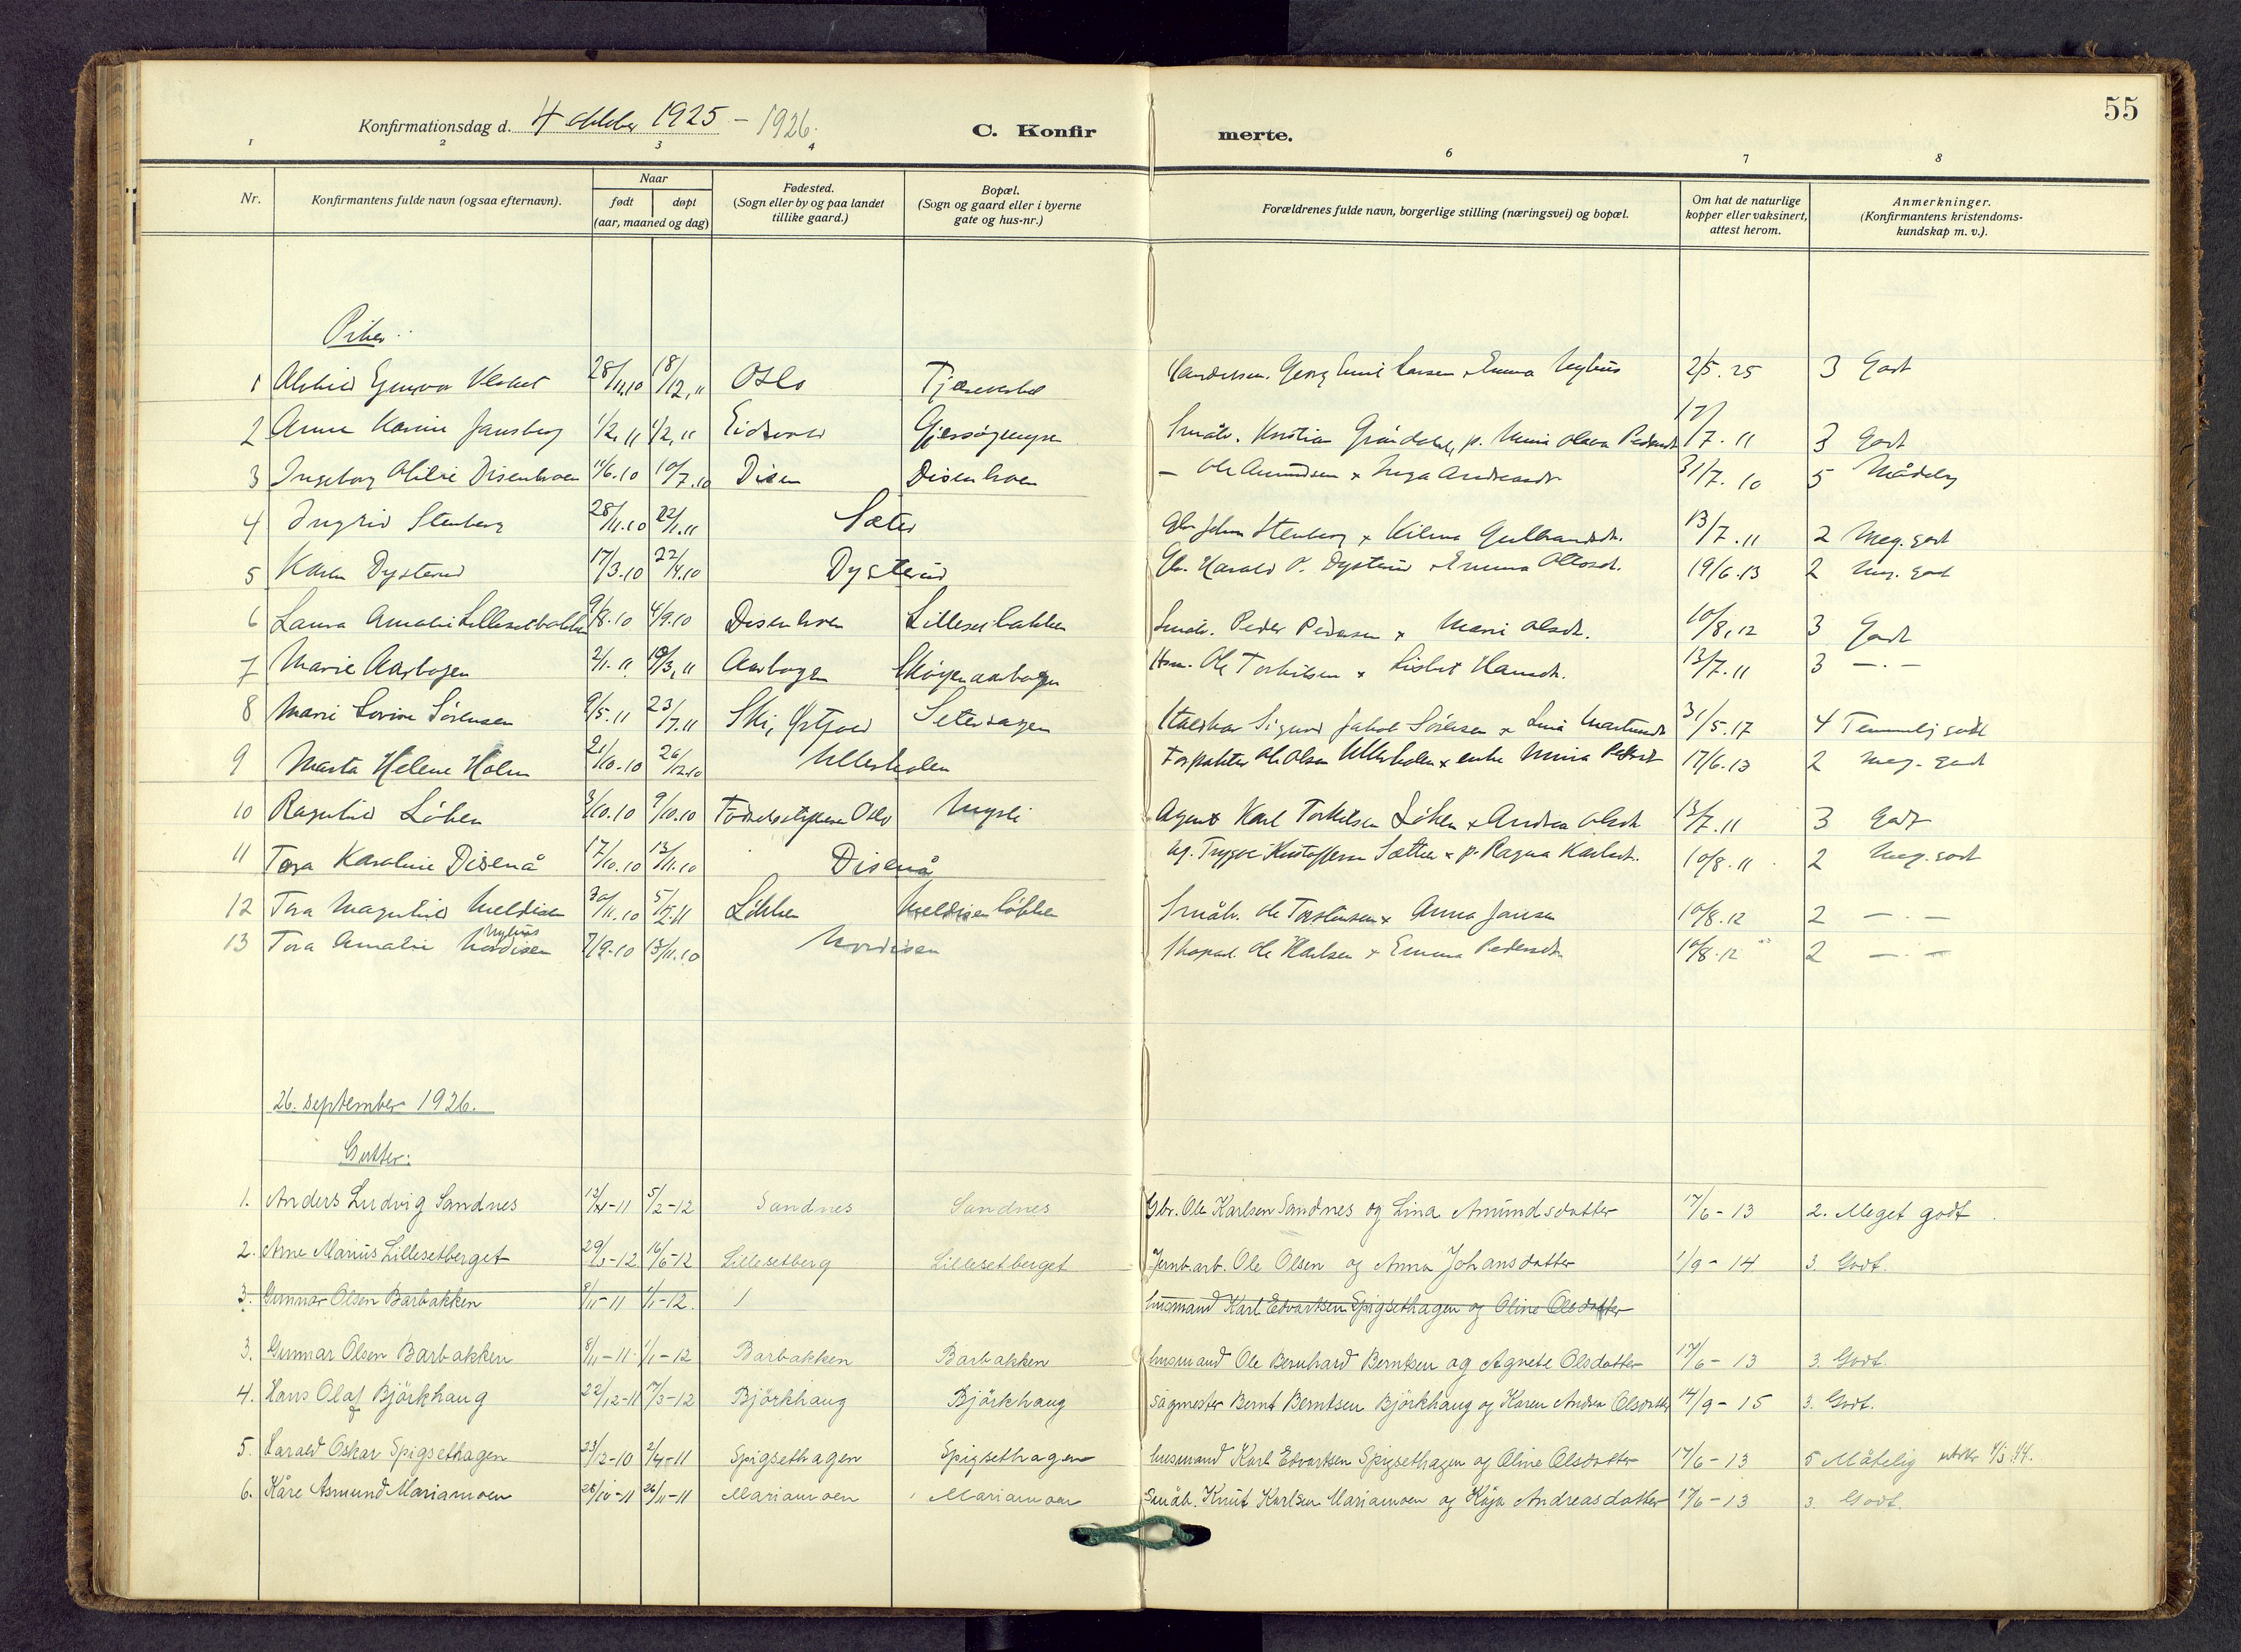 55
Konfirmationsdag d. 4 oktober 1925 - 1926.
C. Konfirmerte.
1 2 3 4 6 7 8
Nr. Konfirmantens fulde navn (ogsaa efternavn). Naar født døpt (aar, maaned og dag) Fødested. (Sogn eller by og paa landet tillike gaard.) Bopæl. (Sogn og gaard eller i byerne gate og hus-nr.) Forældrenes fulde navn, borgerlige stilling (næringsvei) og bopæl. Om hat de naturlige kopper eller vaksinert, attest herom. Anmerkninger. (Konfirmantens kristendomskundskap m. v.).
Piker:
1 28/11.10 18/12.11 Oslo Georg Emil Larsen Emma Nyhus 2/5.25 3 Godt
2 Anna Karine Jansberg 1/2.11 Eidsvold Småbr. Kristian 17/7.11 3 Godt
3 Ingeborg Otilie Disenhoen 11/6.10 10/7.10 Disen Disenhoen - Ole Amundsen x Inga Andreasdr 31/7.10 5 Mådelig
4 Ingrid Stenberg 28/11.10 22/1.11 Sæter Gbr. Johan Stenberg x Gulbrandsdr. 13/7.11 2 Meg. godt
5 Karen Dysterud 17/3.10 22/4.10 Dysterud Gbr. Harald P. Dysterud x Emma Ottosd. 19/6.13 2 Meg. godt
6 Laura Amalie Lillesetbakken 9/8.10 4/9.10 Disenhoen Lillesetbakken Småbr. Peder Pedersen x Marie Olsdr. 10/8.12 3 Godt
7 Marie Aarbogen 2/1.11 19/3.11 Aarbogen Skogenaarbogen Hsm. Ole Torkilsen x Lisbet Hansdr. 13/7.11 3 -.-
8 Marie Lovise Sörensen 9/5.11 23/7.11 Ski, Østfold Setersagen Sigurd Jakob Sörensen x 31/5.17 4 Temmelig godt
9 Marta Helene Holm 21/10.10 26/12.10 Ullersholen Forpakter Ole Olsen Ullersholen x enke Mina 17/6.13 2 Meg. godt
10 Ragnhild Löken 3/10.10 9/10.10 Födselsstiftelsen Oslo Nysli Agent Karl Torkilsen Löken x Andrea Olsdr 13/7.11 3 Godt
11 Tora Karoline Disenå 17/10.10 13/11.10 Disenå Ug. Trygve Kristoffersen Sætter x p. Ragna Karlsdr. 10/8.11 2 Meg. godt
12 Tora Magnhild Meldisen 30/11.10 5/2.11 Løkken Meldisenløkken Småbr. Ole Torstensen x Anna Jansen 10/8.12 2 -.-
nyhus
13 Tora Amalie Nordisen 7/9.10 13/11.10 Nordisen Skoparb. Ole Karlsen x Emma Pedersdr 10/8.12 2 -.-
26. september 1926.
Gutter:
1. Anders Ludvig Sandnes 5/2-12 Sandnes Sandnes Gbr. Ole Karlsen Sandnes og Lina Amundsdatter 17/6-13 2. Meget godt
2. Arne Marius Lillesetberget 29/3-12 16/6-12 Lillesetberg Lillesetberget Jernb.arb. Ole Olsen og Anna Johansdatter 1/9-14 3. Godt.
3. Gunnar Olsen Barbakken 8/11-11 1/1-12. husmand Karl Edvartsen Spigsethagen og Oline Olsdatter
3. Gunnar Olsen Barbakken 8/11-11 1/1-12 Barbakken Barbakken husmand Ole Bernhard Berntsen og Agnete Olsdatter 17/6-13 3. Godt.
4. Hans Olaf Björkhaug 22/12-11 17/3-12 Björkhaug Björkhaug sagmester Bernt Berntsen Björkhaug og Karen Andrea Olsdatter 14/9-15 3. Godt.
5. Harald Oskar Spigsethagen 23/12-10 2/4-11 Spigsethagen Spigsethagen husmand Karl Edvartsen Spigsethagen og Oline Olsdatter 17/6-13 5 Måtelig
6. Kåre Asmund Mariamoen 28/10-11 26/11-11 Mariamoen Mariamoen Småb. Knut Karlsen Mariamoen og Kaja Andreasdatter 17/6-13 3. Godt.